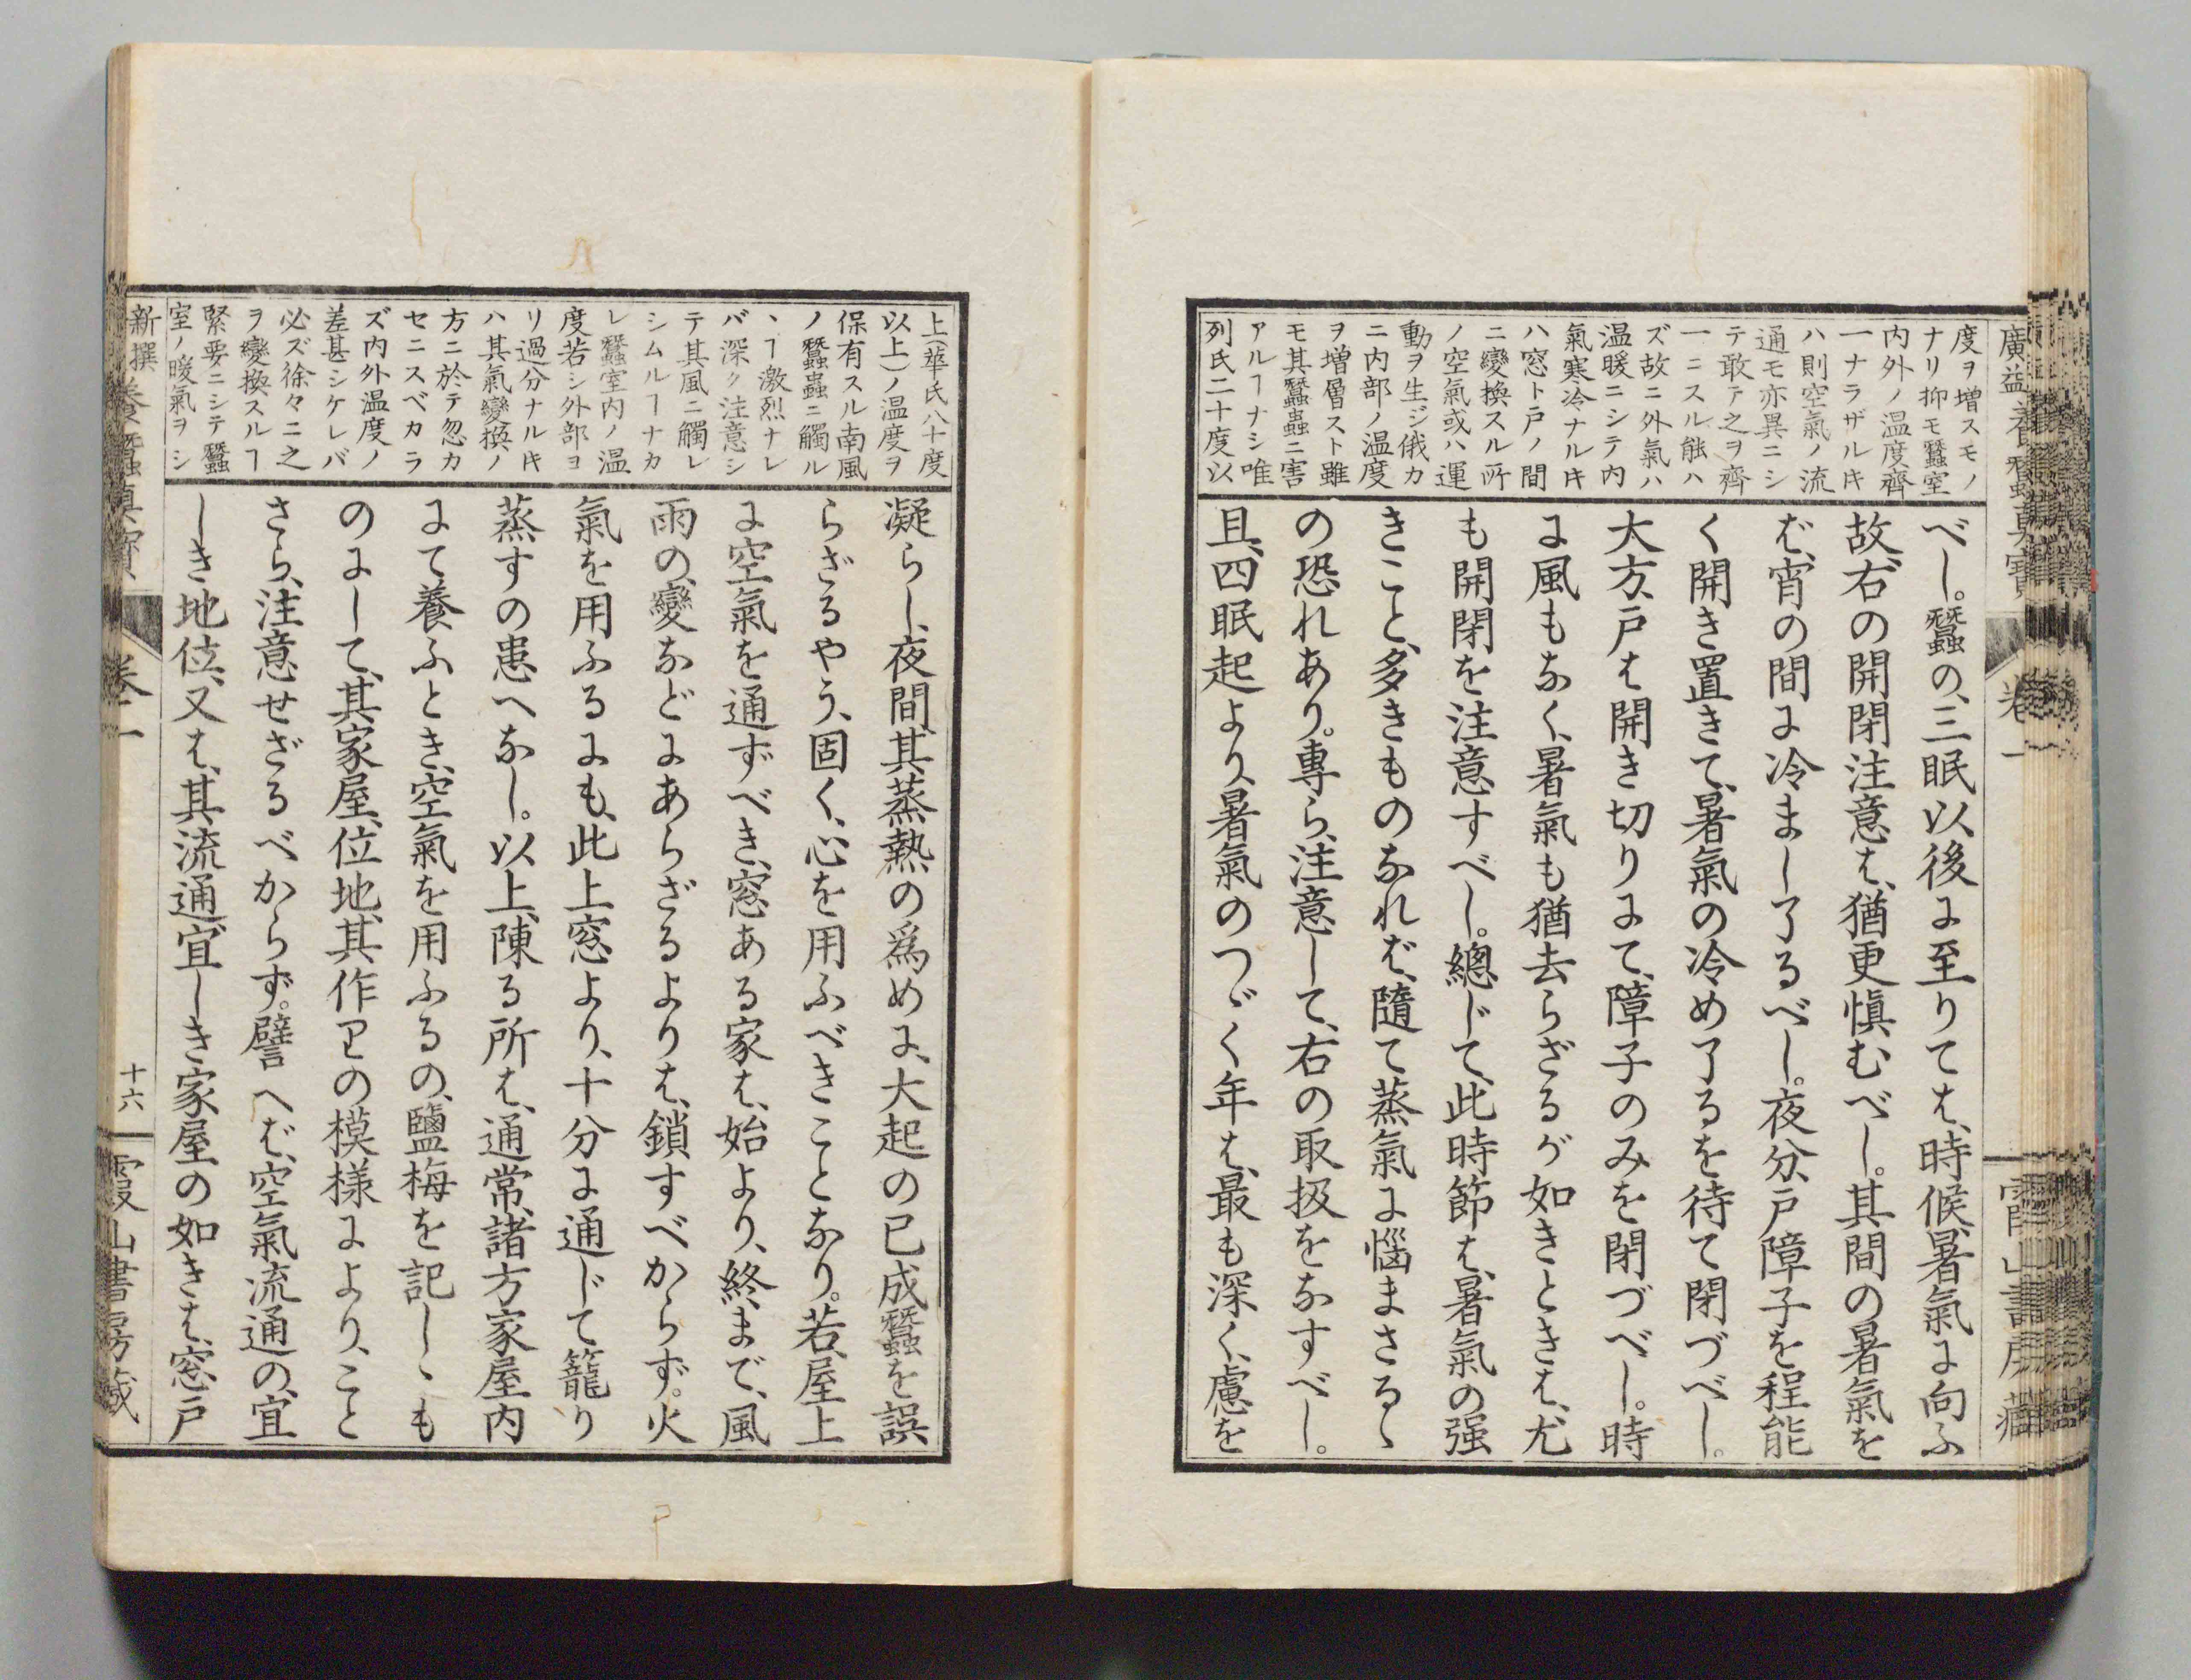 廣益養蠶真寶
卷一
霞山書房藏
度ヲ增スモノ
ナリ抑モ蠶室
内外ノ温度齊
一ナラザルトキ
ハ則空氣ノ流
通モ亦異ニシ
テ敢テ之ヲ齊
一ニスル能ハ
ズ故ニ外氣ハ
温暖ニシテ内
氣寒冷ナルトキ
ハ窓ト戸ノ間
ニ變換スル所
ノ空氣或ハ運
動ヲ生ジ俄カ
ニ内部ノ温度
ヲ増層スト雖
モ其蠶蟲ニ害
アルヿナシ唯
列氏二十度以
べし。蠶の、三眠以後に至りては、時候、暑氣に向ふ
故、右の開閉注意は、猶更愼むべし。其間の暑氣を
ば、宵の間に冷まし了るべし。夜分、戸障子を程能
く開き置きて、暑氣の冷め了るを待て閉づべし。
大方、戸は開き切りにて、障子のみを閉づべし。時
に風もなく、暑氣も猶去らざるが如きときは、尤
も開閉を注意すべし。總じて、此時節は、暑氣の强
きこと、多きものなれば、隨て蒸氣に惱まさるゝ
の恐れあり。專ら、注意して、右の取扱をなすべし。
且、四眠起より、暑氣のつゞく年は、最も深く、慮を
上(華氏八十度
以上)ノ温度ヲ
保有スル南風
ノ蠶蟲ニ觸ル
ヽヿ激烈ナレ
バ深ク注意シ
テ其風ニ觸レ
シムルヿナカ
レ蠶室内ノ温
度若シ外部ヨ
リ過分ナルトキ
ハ其氣變換ノ
方ニ於テ忽カ
セニスベカラ
ズ内外温度ノ
差甚シケレバ
必ズ徐々ニ之
ヲ變換スルヿ
緊要ニシテ蠶
室ノ暖氣ヲシ
凝らし、夜間、其蒸熱の爲めに、大起の已成蠶を誤
らざるやう、固く、心を用ふべきことなり。若、屋上
に空氣を通ずべき、窓ある家は、始より、終まで、風
雨の、變などにあらざるよりは、鎖すべからず。火
氣を用ふるにも、此上窓より、十分に通じて籠り
蒸すの患へなし。以上、陳る所は、通常、諸方家屋内
にて養ふとき、空氣を用ふるの、鹽梅を記しゝも
のにして、其家屋、位地、其作りの模樣により、こと
さら、注意せざるべからず。譬へば、空氣流通の、宜
しき地位、又は、其流通宜しき家屋の如きは、窓戸
新撰養蠶真寶
卷一
十六
霞山書房藏